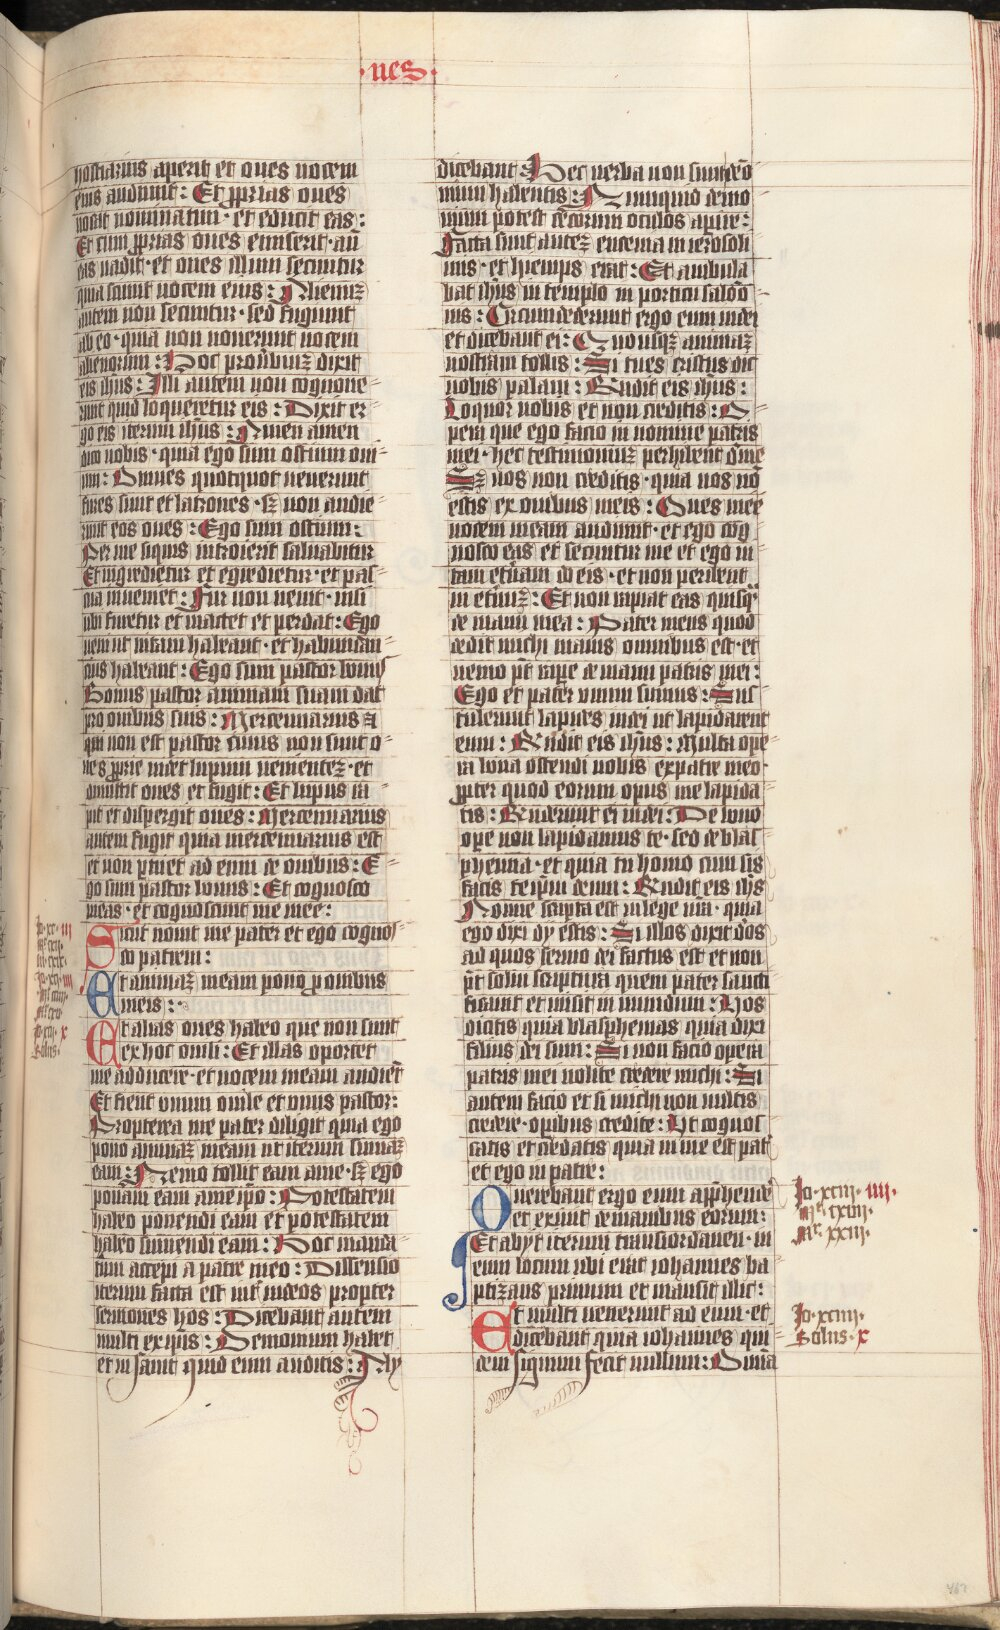 ·nes·
hostiarius aperit et oues vocem
eius audiunt: Et ꝓprias oues
vocat nominatim· et educit eas:
Et cum ꝓprias oues emiserit· an̄
eas vadit· et oues illum secuntur
quia sciunt vocem eius: Alienuʒ
autem non secuntur· sed fugiunt
ab eo· quia non nouerunt vocem
alienorum: Hoc prouerbiuʒ dixit
eis ih̄us: Illi autem non cognoue
runt quid loqueretur eis: Dixit er
go eis iterum ih̄us: Amen amen
dico vobis· quia ego sum ostium oui
um: Omnes quotquot venerunt
fures sunt et latrones· sʒ non audie
runt eos oues: Ego sum ostium:
Per me siquis introierit saluabitur
Et ingredietur et egredietur· et pas
cua inueniet: Fur non venit· nisi
vbi furetur et mactet et perdat: Ego
veni vt vitam habeant· et habundan
cius habeant: Ego sum pastor bonus
Bonus pastor animam suam dat
pro ouibus suis: Mercennarius ⁊
qui non est pastor cuius non sunt o
ues ꝓprie videt lupum venienteʒ· et
dimittit oues et fugit: Et lupus ra
pit et dispergit oues: Mercennarius
autem fugit quia mercennarius est
et non ꝑtinet ad eum de ouibus: E
go sum pastor bonus: Et cognosco
meas· et cognoscunt me mee:
Sicut nouit me pater et ego cognos
co patrem:
Et animaʒ meam pono ꝓ ouibus
meis:
Et alias oues habeo que non sunt
ex hoc ouili: Et illas oportet
me adducere· et vocem meam audient
Et fient vnum ouile et vnus pastor:
Propterea me pater diligit quia ego
pono animaʒ meam vt iterum sumaʒ
eam: Nemo tollit eam a me· sʒ ego
ponam eam a me ip̄o: Potestatem
habeo ponendi eam et potestatem
habeo sumendi eam: Hoc manda
tum accepi a patre meo: Dissensio
iterum facta est int̄ iudeos propter
sermones hos: Dicebant autem
multi ex ipsis: Demonium habet
et insanit quid eum auditis: Aly
dicebant: Hec verba non sunt demo
nium habentis: Numquid demo
nium potest cecorum oculos aꝑire:
Facta sunt auteʒ encenia in ierosoli
mis· et hiemps erat: Et ambula
bat ih̄us in templo in porticu salōo
nis: Circumdederunt ergo eum iudei
et dicebant ei: Quousqʒ animaʒ
nostram tollis: Si tu es cristus dic
nobis palam: Rn̄dit eis ih̄us:
Loquor vobis et non creditis: O
pera que ego facio in nomine patris
mei· hec testimoniuʒ perhibent d̄ me
Sʒ vos non creditis· quia vos nō
estis ex ouibus meis: Oues mee
vocem meam audiunt· et ego cog
nosco eas et secuntur me et ego vi
tam et̄nam do eis· et non peribent
in et̄nuʒ: Et non rapiat eas quisqʒ
de manu mea: Pater meus quod
dedit michi maius omnibus est· et
nemo pt̄ rapere de manu patris mei:
Ego et pater vnum sumus: Sus
tulerunt lapides iudei vt lapidarent
eum: Rn̄dit eis ih̄us: Multa ope
ra bona ostendi vobis ex patre meo·
ꝓpter quod eorum opus me lapida
tis: Rn̄derunt ei iudei: De bono
oꝑe non lapidamus te· sed de blas
phemia· et quia tu homo cum sis
facis teip̄m deum: Rn̄dit eis ih̄s
Nonne scripta est in lege vr̄a· quia
ego dixi dy estis: Si illos dixit deos
ad quos sermo dei factus est et non
pt̄ solui scriptura quem pater sancti
ficauit et misit in mundum: Vos
dicitis quia blasphemas quia dixi
filius dei sum: Si non facio opera
patris mei nolite credere michi: Si
autem facio et si michi non vultis
credere· oꝑibus credite: Vt cognos
catis et credatis quia in me est pat̄
et ego in patre:
Querebant ergo eum app̄hende
et exiuit de manibus eorum:
Et abyt iterum transiordanen· in
eum locum vbi erat iohannes ba
ptizans primum et mansit illic:
Et multi venerunt ad eum· et
dicebant quia iohannes qui
dem signum fecit nullum: Omnia
Jo· xciii· iiii·
Mr· xxiii·
Jo· xciiii·
Solus· x